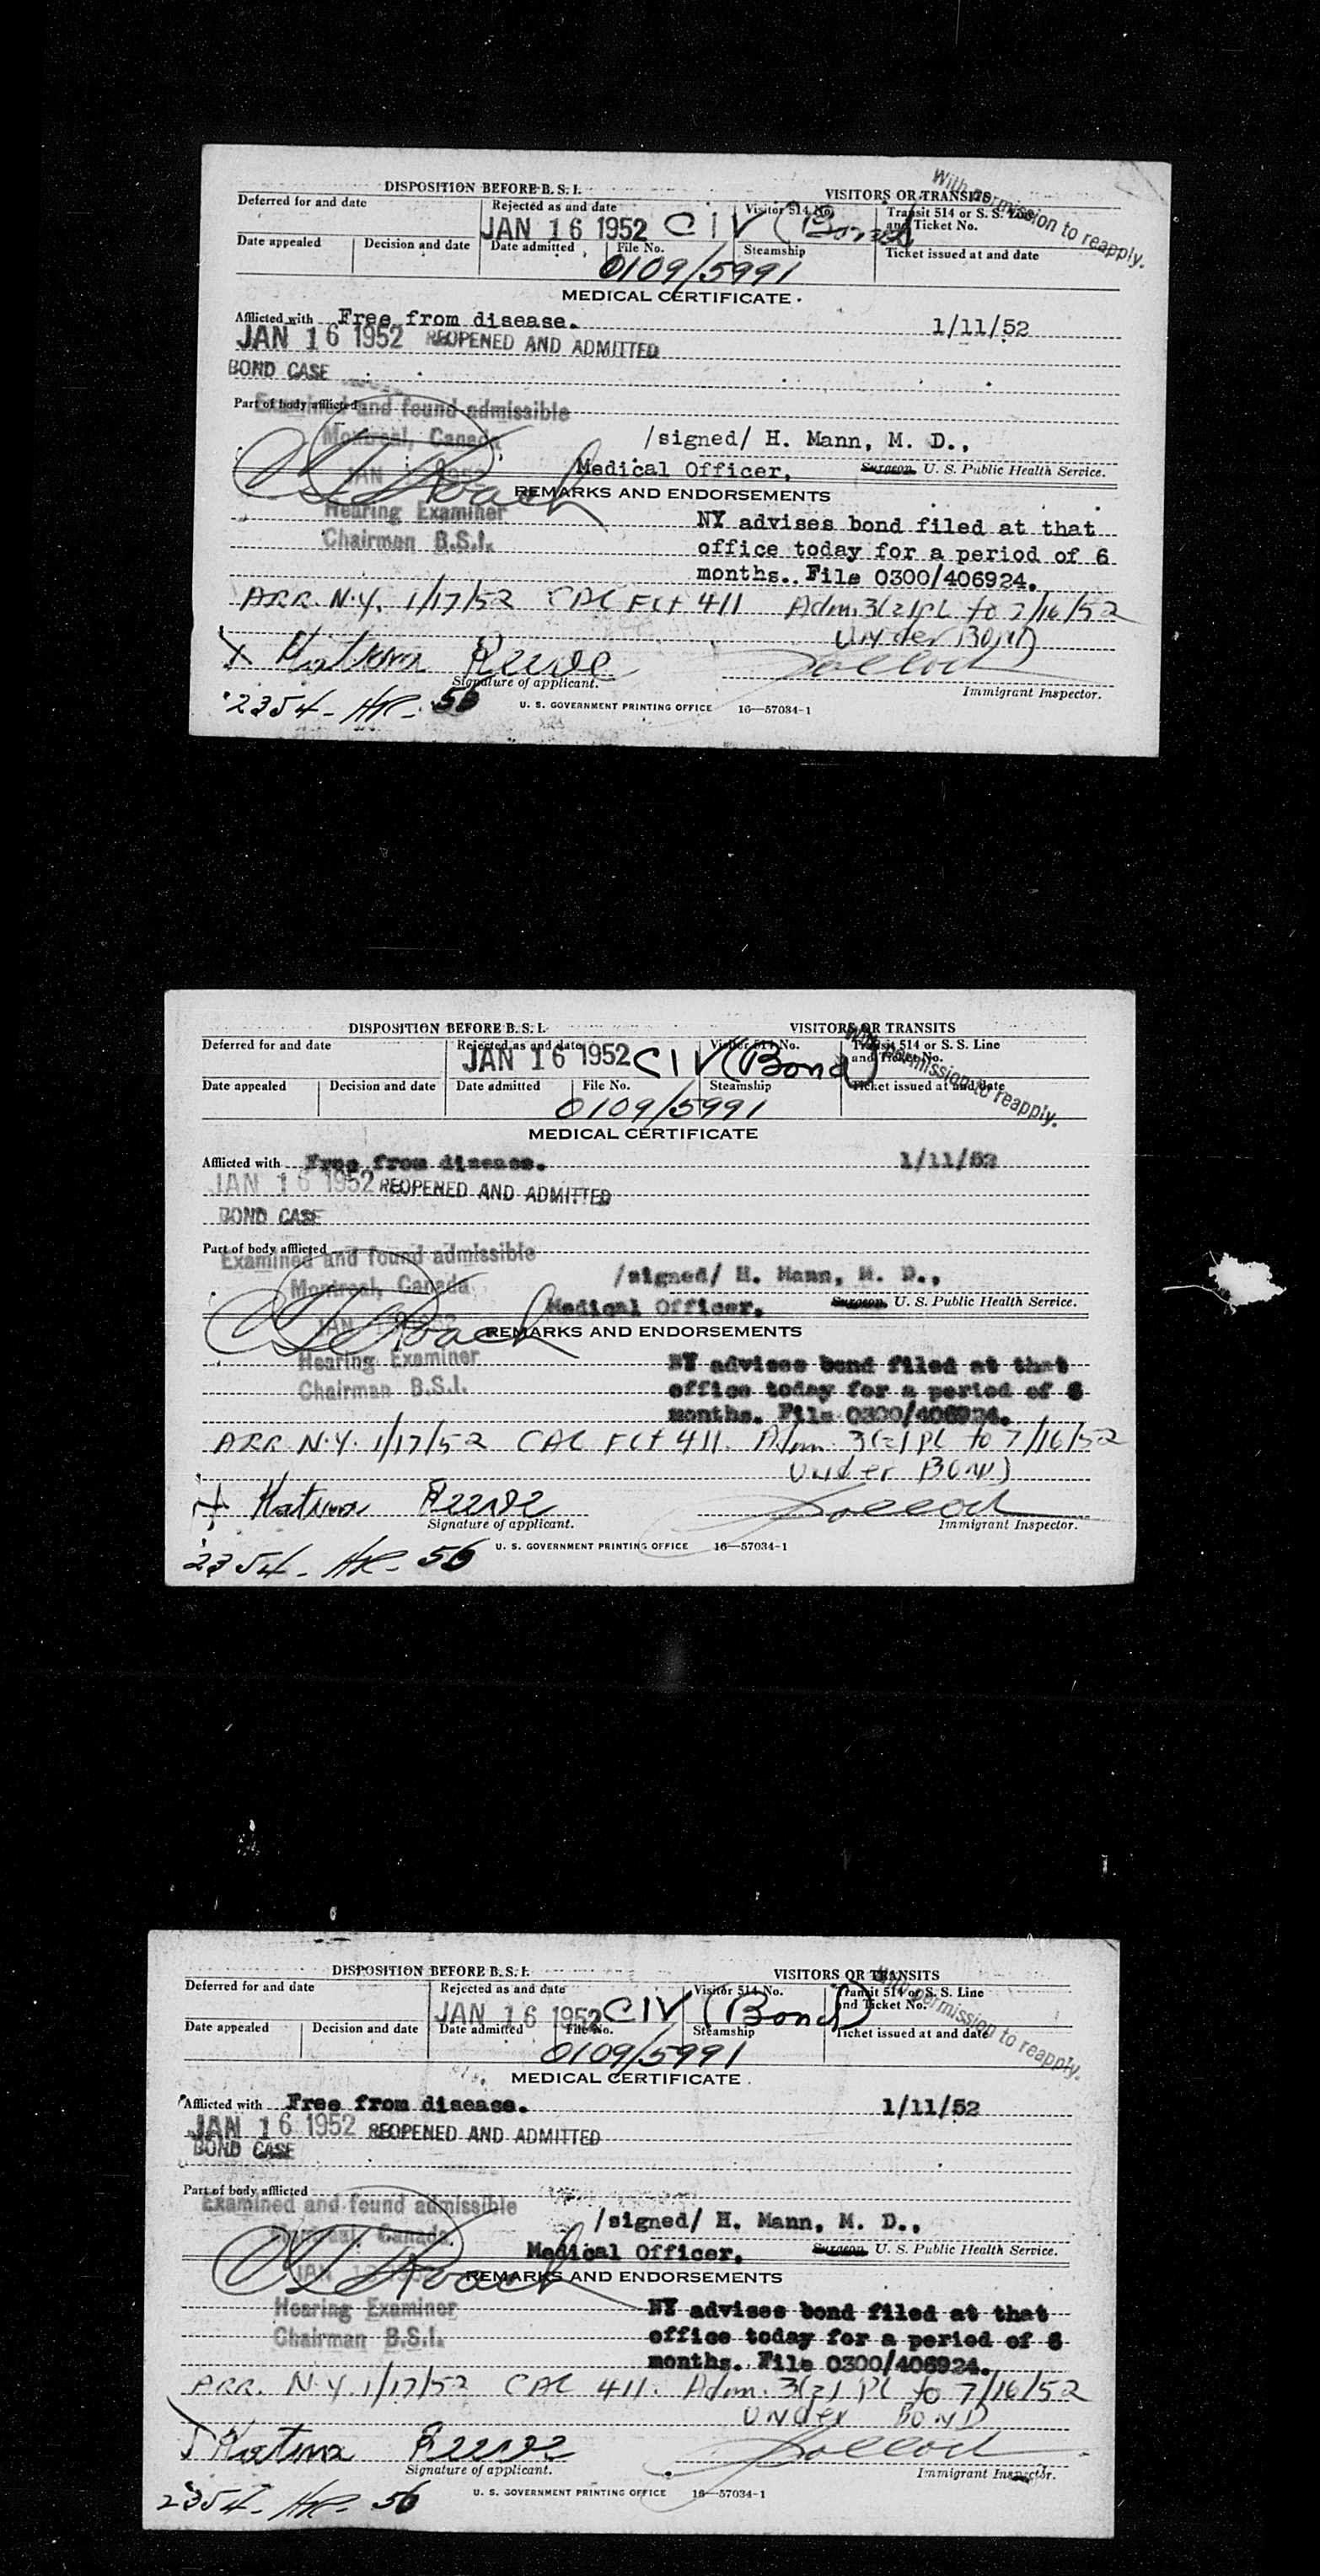 DISPOSITION BEFORE B. S. I.
VISITORS OR TRANSITS
With permission to reapply.
Deferred for and date
Rejected as and date
Visitor 514 No.
Transit 514 or S. S. Line
and Ticket No.
JAN 16 1952 CIV (Bond)
Date appealed
Decision and date
Date admitted
File No.
Steamship
Ticket issued at and date
0109/5991
MEDICAL CERTIFICATE
Afflicted with Free from disease. 1/11/52
JAN 16 1952 REOPENED AND ADMITTED
BOND CASE
Part of body afflicted
Examined and found admissible
Montreal, Canada
/signed/ H. Mann, M. D.,
Medical Officer, Surgeon, U. S. Public Health Service.
REMARKS AND ENDORSEMENTS
Hearing Examiner
Chairman B.S.I.
NY advises bond filed at that
office today for a period of 6
months. File 0300/406924.
ARR. N.Y. 1/17/52 CAL FLT 411 Adm. 3(2) PL to 7/16/52
Under BOND
X Katina
Signature of applicant.
Immigrant Inspector.
2354- HR- 56
U. S. GOVERNMENT PRINTING OFFICE 16—57034-1
DISPOSITION BEFORE B. S. I.
VISITORS OR TRANSITS
With permission to reapply.
Deferred for and date
Rejected as and date
Visitor 514 No.
Transit 514 or S. S. Line
and Ticket No.
JAN 16 1952 CIV (Bond)
Date appealed
Decision and date
Date admitted
File No.
Steamship
Ticket issued at and date
0109/5991
MEDICAL CERTIFICATE
Afflicted with Free from disease. 1/11/52
JAN 16 1952 REOPENED AND ADMITTED
BOND CASE
Part of body afflicted
Examined and found admissible
Montreal, Canada
/signed/ H. Mann, M. D.,
Medical Officer, Surgeon, U. S. Public Health Service.
REMARKS AND ENDORSEMENTS
Hearing Examiner
Chairman B.S.I.
NY advises bond filed at that
office today for a period of 6
months. File 0300/406924.
ARR N.Y. 1/17/52 CAL FLT 411. Adm. 3(2) PL to 7/16/52
Under BOND
Katina
Signature of applicant.
Immigrant Inspector.
2354- HR- 56
U. S. GOVERNMENT PRINTING OFFICE 16—57034-1
DISPOSITION BEFORE B. S. I.
VISITORS OR TRANSITS
With permission to reapply.
Deferred for and date
Rejected as and date
Visitor 514 No.
Transit 514 or S. S. Line
and Ticket No.
JAN 16 1952 CIV (Bond)
Date appealed
Decision and date
Date admitted
File No.
Steamship
Ticket issued at and date
0109/5991
MEDICAL CERTIFICATE
Afflicted with Free from disease. 1/11/52
JAN 16 1952 REOPENED AND ADMITTED
BOND CASE
Part of body afflicted
Examined and found admissible
Montreal, Canada
/signed/ H. Mann, M. D.,
Medical Officer, Surgeon, U. S. Public Health Service.
REMARKS AND ENDORSEMENTS
Hearing Examiner
Chairman B.S.I.
NY advises bond filed at that
office today for a period of 6
months. File 0300/406924.
ARR. N.Y. 1/17/52 CAL 411. Adm. 3(2) PL to 7/16/52
UNDER BOND
Katina
Signature of applicant.
Immigrant Inspector.
2354- HR- 56
U. S. GOVERNMENT PRINTING OFFICE 16—57034-1